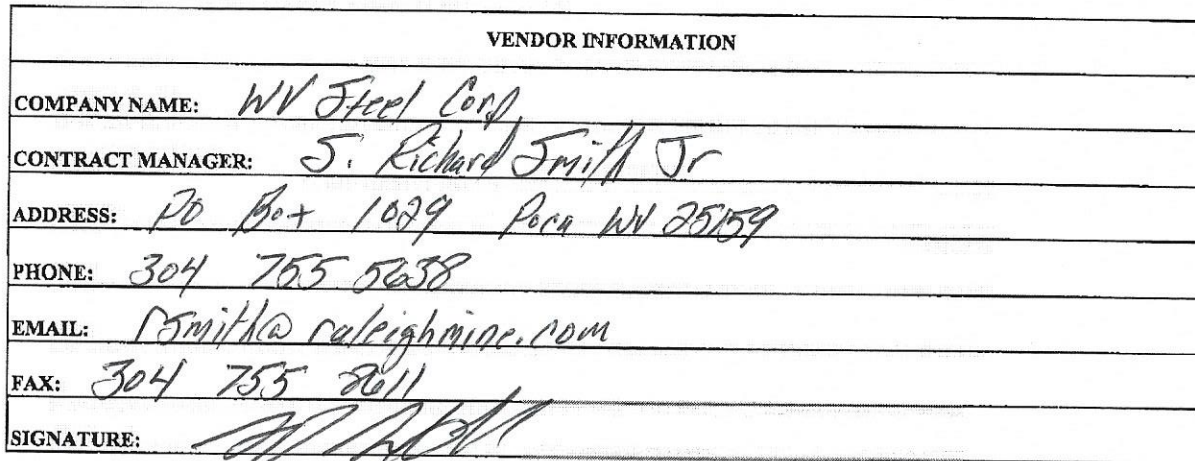 VENDOR INFORMATION
COMPANY NAME: WV Steel Corp
CONTRACT MANAGER: S. Richard Smith Jr
ADDRESS: PO Box 1029 Poca WV 25159
PHONE: 304 755 5638
EMAIL: rsmith@raleighmine.com
FAX: 304 755 2611
SIGNATURE: